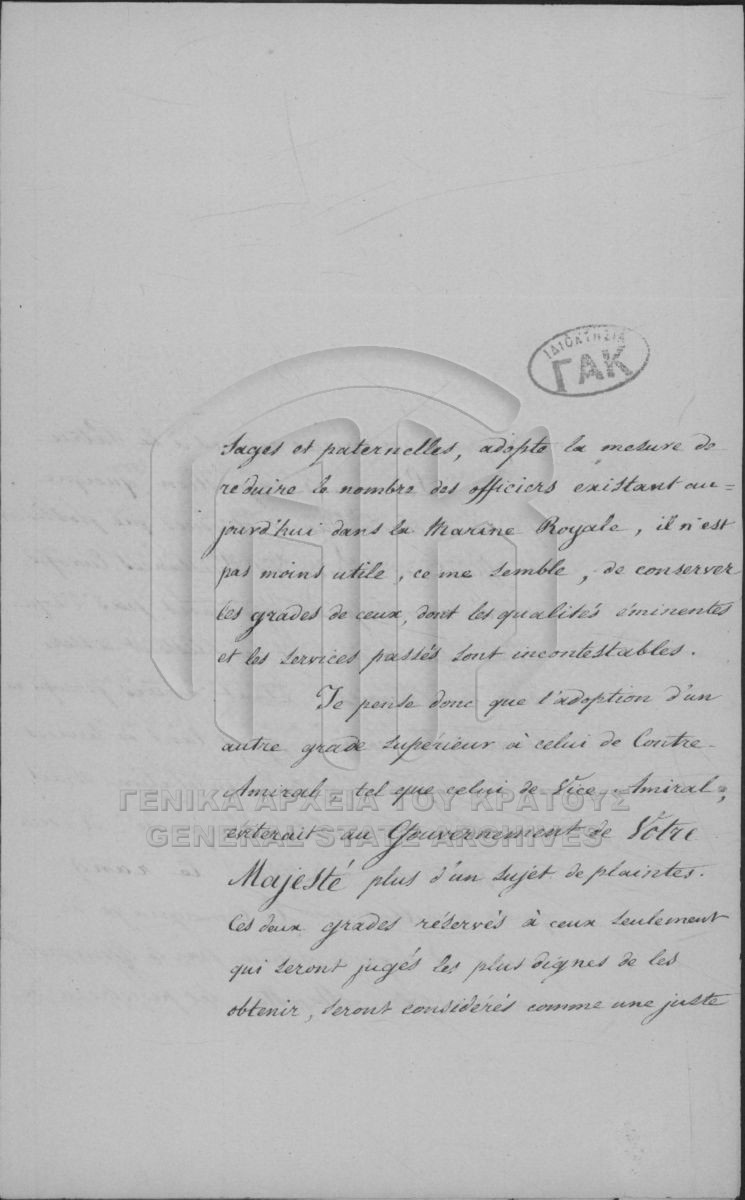 ΙΔΙΟΚΤΗΣΙΑ
ΓΑΚ
Sages et paternelles, adopte la mesure de
réduire le nombre des officiers existant au=
jourd'hui dans la Marine Royale, il n'est
pas moins utile, ce me semble, de conserver
les grades de ceux, dont les qualités éminentes
et les services passés sont incontestables.
Je pense donc que l'adoption d'un
autre grade supérieur à celui de Contre-
Amiral tel que celui de Vice-Amiral,
éviterait au Gouvernement de Votre
Majesté plus d'un sujet de plaintes.
Ces deux grades réservés à ceux seulement
qui seront jugés les plus dignes de les
obtenir, seront considérés comme une juste
ΓΕΝΙΚΑ ΑΡΧΕΙΑ ΤΟΥ ΚΡΑΤΟΥΣ
GENERAL STATE ARCHIVES